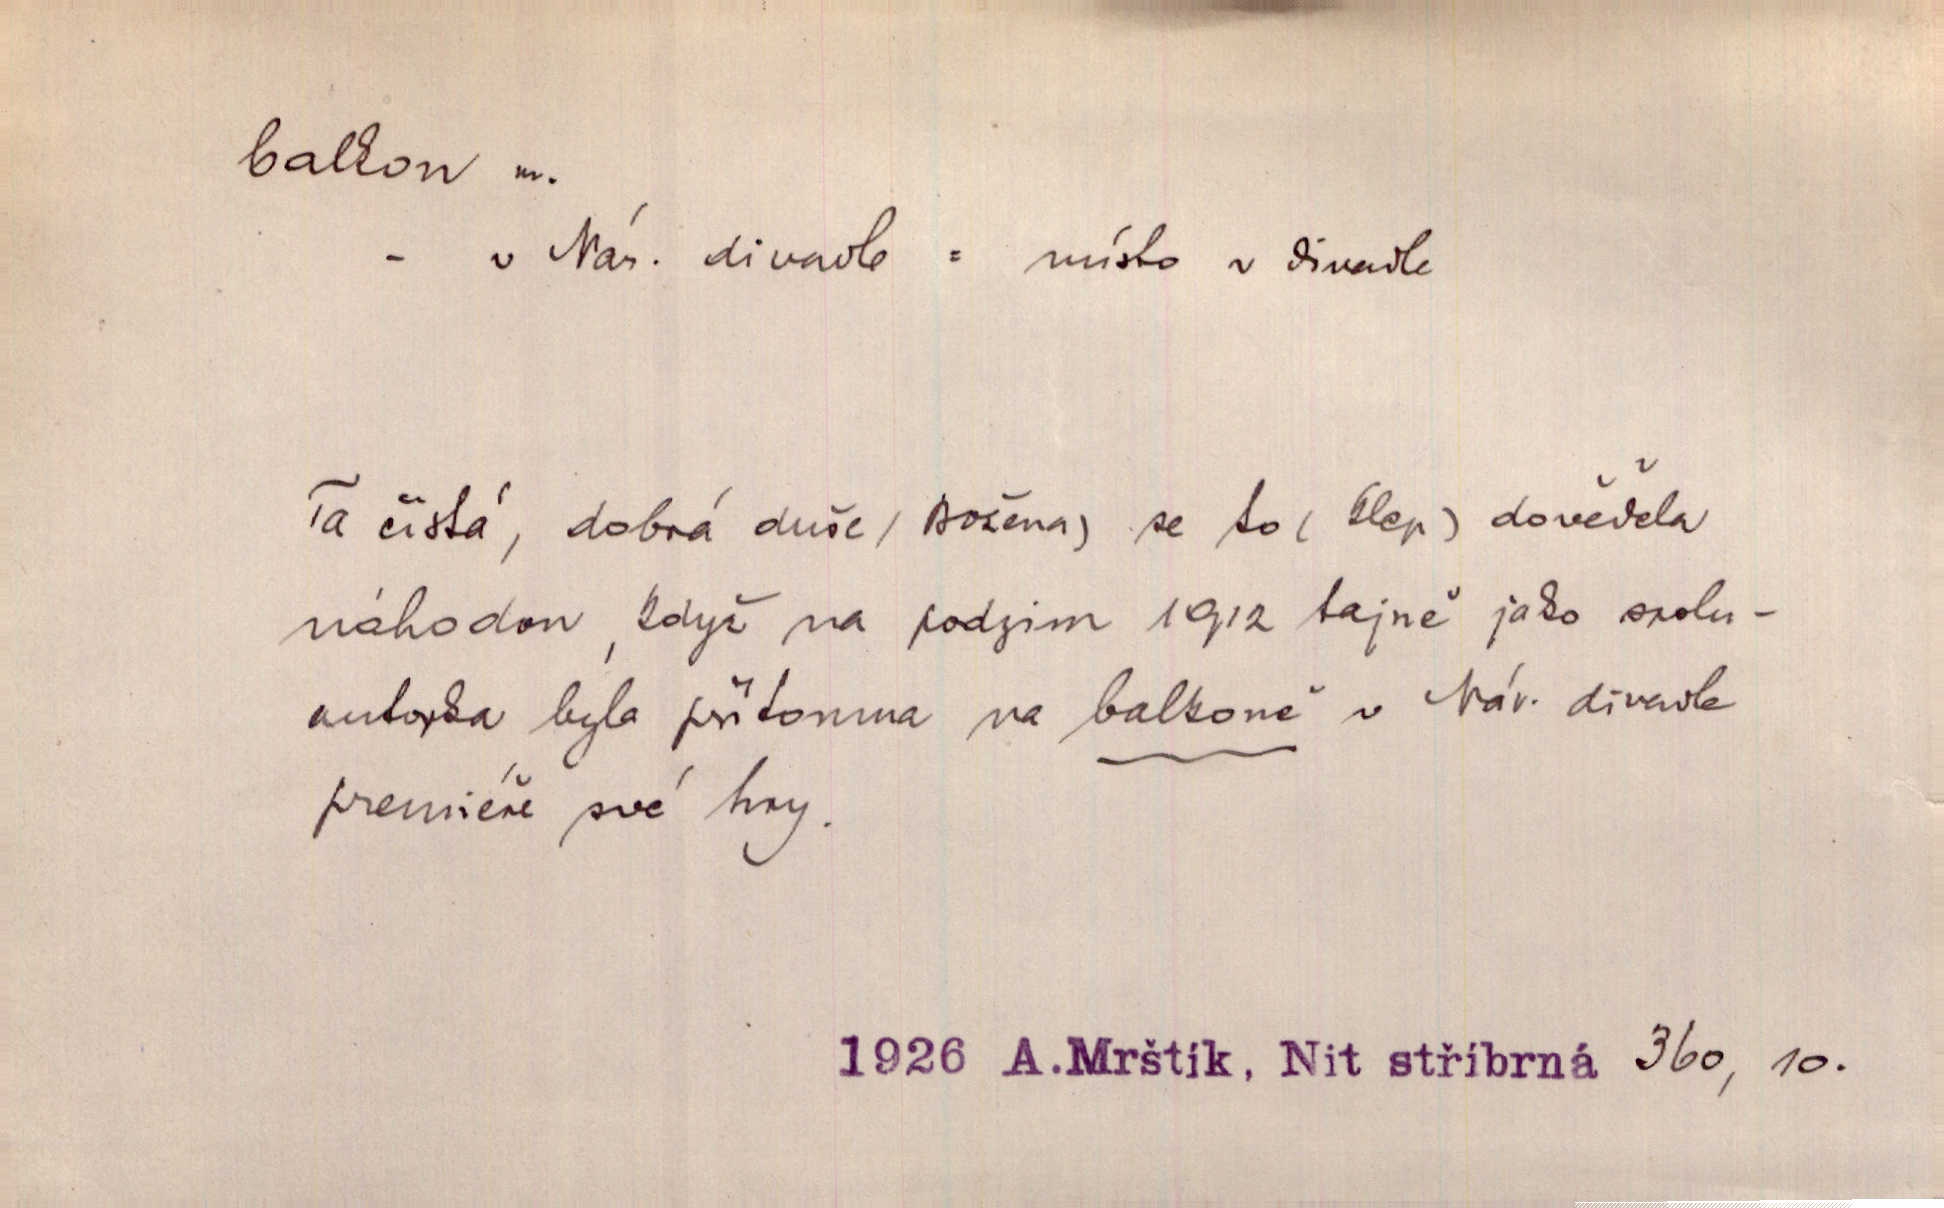 balkon m.
- v Nár. divadle = místo v divadle
Ta čistá, dobrá duše (Božena) se to (klep) dověděla
náhodou, když na podzim 1912 tajně jako spolu-
autorka byla přítomna na balkoně v Nár. divadle
premiéře své hry.
1926 A.Mrštík, Nit stříbrná 360, 10.